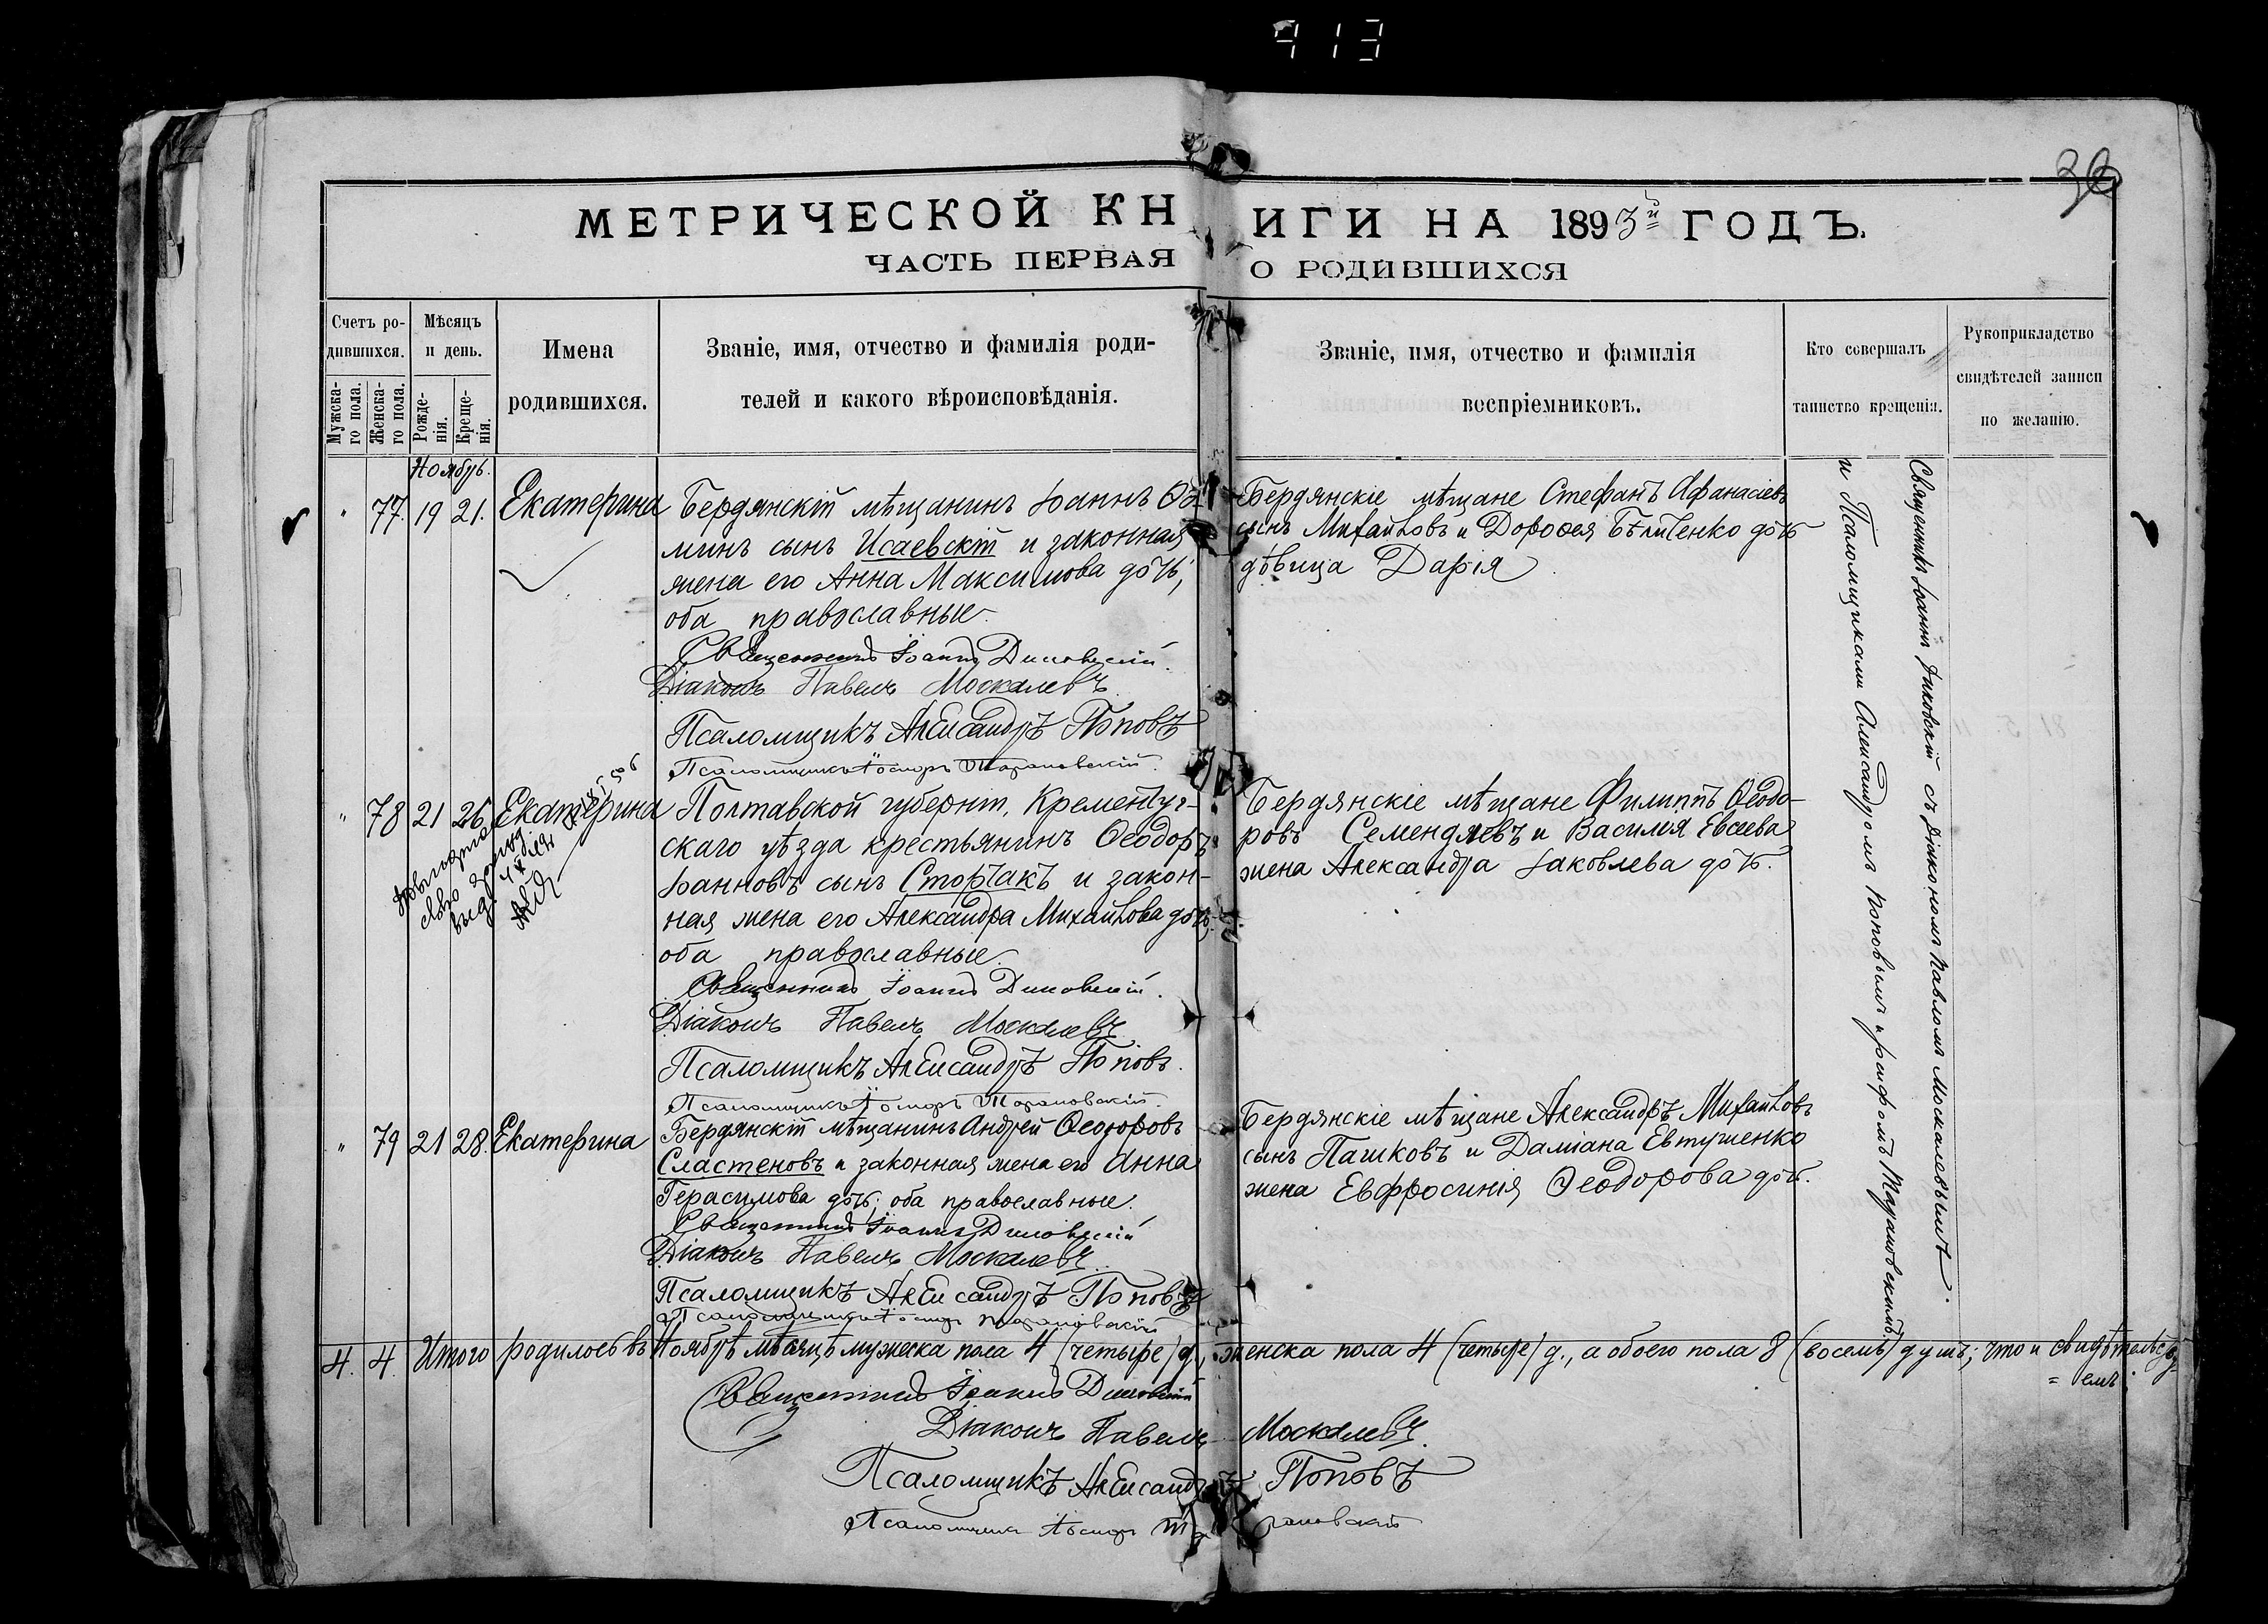 913
МЕТРИЧЕСКОЙ КНИГИ НА 1893й ГОДЪ.
ЧАСТЬ ПЕРВАЯ О РОДИВШИХСЯ
Счетъ ро-
дившихся.
Мужска-
го пола.
Женска-
го пола.
Мѣсяцъ
и день.
Рожде-
нія.
Креще-
нія.
Имена
родившихся.
Званіе, имя, отчество и фамилія роди-
телей и какого вѣроисповѣданія.
Званіе, имя, отчество и фамилія
воспріемниковъ.
Кто совершалъ
таинство крещенія.
Рукоприкладство
свидѣтелей записи
по желанію.
Ноябрь.
" 77. 19 21. Екатерина
Бердянскій мѣщанинъ Іоаннъ Ѳо-
минъ сынъ Исаевскій и законная
жена его Анна Максимова дочь,
оба православные.
Священникъ Іоаннъ Диковскій.
Діаконъ Павелъ Москалевъ
Псаломщикъ Александръ Поповъ
Псаломщикъ Тарановскій.
Бердянскіе мѣщане Стефанъ Афанасіевъ
сынъ Михайловъ и Дорофея Бѣличенко дочь
дѣвица Дарія
" 78 21 26 Екатерина
Полтавской губерніи, Кременчуг-
скаго уѣзда крестьянинъ Ѳеодоръ
Іоанновъ сынъ Сторчакъ и закон-
ная жена его Александра Михайлова дочь,
оба православные.
Священникъ Іоаннъ Диковскій.
Діаконъ Павелъ Москалевъ
Псаломщикъ Александръ Поповъ.
Псаломщикъ Тарановскій.
Бердянскіе мѣщане Филиппъ Ѳеодо-
ровъ Семендяевъ и Василія Евсеева
жена Александра Іаковлева дочь.
" 79 21 28. Екатерина
Бердянскій мѣщанинъ Андрей Ѳеодоровъ
Сластеновъ и законная жена его Анна
Герасимова дочь; оба православные.
Священникъ Іоаннъ Диковскій
Діаконъ Павелъ Москалевъ
Псаломщикъ Александръ Поповъ
Псаломщикъ Тарановскій
Бердянскіе мѣщане Александръ Михайловъ
сынъ Пашковъ и Даміана Евтушенко
жена Евфросинія Ѳеодорова дочь.
Священникъ Іоаннъ Диковскій съ Діакономъ Павломъ Москалевымъ
и Псаломщиками Александромъ Поповымъ и Тарановскимъ.
4. 4. Итого родилось въ Ноябрѣ мѣсяцѣ мужеска пола 4 (четыре) д., женска пола 4 (четыре) д., а обоего пола 8 (восемь) душъ; что и свидѣтельству-
= емъ:
Священникъ Іоаннъ Диковскій
Діаконъ Павелъ Москалевъ.
Псаломщикъ Александръ Поповъ
Псаломщикъ Тарановскій